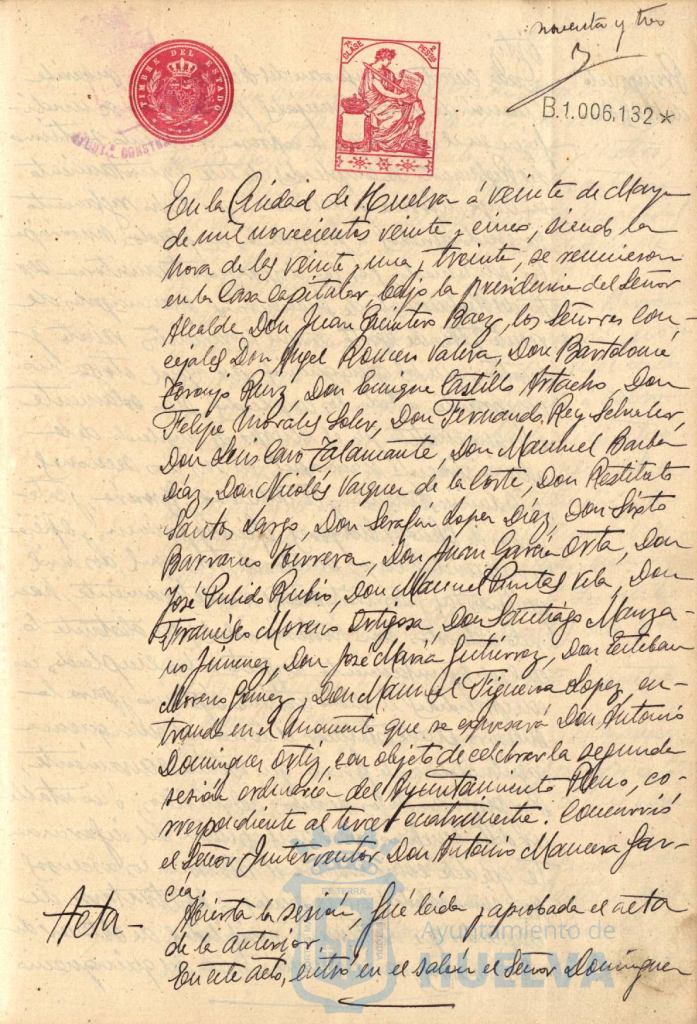 noventa y tres
TIMBRE DEL ESTADO
7ª CLASE
PESETAS
B.1.006,132*
En la Ciudad de Huelva á veinte de Mayo
de mil novecientos veinte y cinco, siendo la
hora de las veinte y una y treinta, se reunieron
en la Casa Capitular bajo la presidencia del Señor
Alcalde Don Juan Quintero Baez, los Señores Con-
cejales Don Angel Romeu Valera, Don Bartolomé
Toronjo Ruiz, Don Enrique Castillo Artacho, Don
Felipe Morales Soler, Don Fernando Rey Schuler,
Don Luis Caro Talamante, Don Manuel Barba
Díaz, Don Nicolás Vazquez de la Corte, Don Restituto
Santos Largo, Don Serafín Lopez Díaz, Don Sixto
Barranco Herrera, Don Juan García Orta, Don
José Pulido Rubio, Don Manuel Puntas Vela, Don
Francisco Moreno Ortigosa, Don Santiago Manza-
no Jimenez, Don José María Gutiérrez, Don Esteban
Moreno Gómez, y Don Manuel Figueroa Lopez, en-
trando en el momento que se expresará Don Antonio
Dominguez Ortiz, con objeto de celebrar la segunda
sesión ordinaria del Ayuntamiento Pleno, co-
rrespondiente al tercer cuatrimestre. Concurrió
el Señor Interventor Don Antonio Mancera Gar-
cía.
Acta- Abierta la sesión, fué leida y aprobada el acta
de la anterior.
En este acto, entró en el salón el Señor Dominguez
Ayuntamiento de
HUELVA